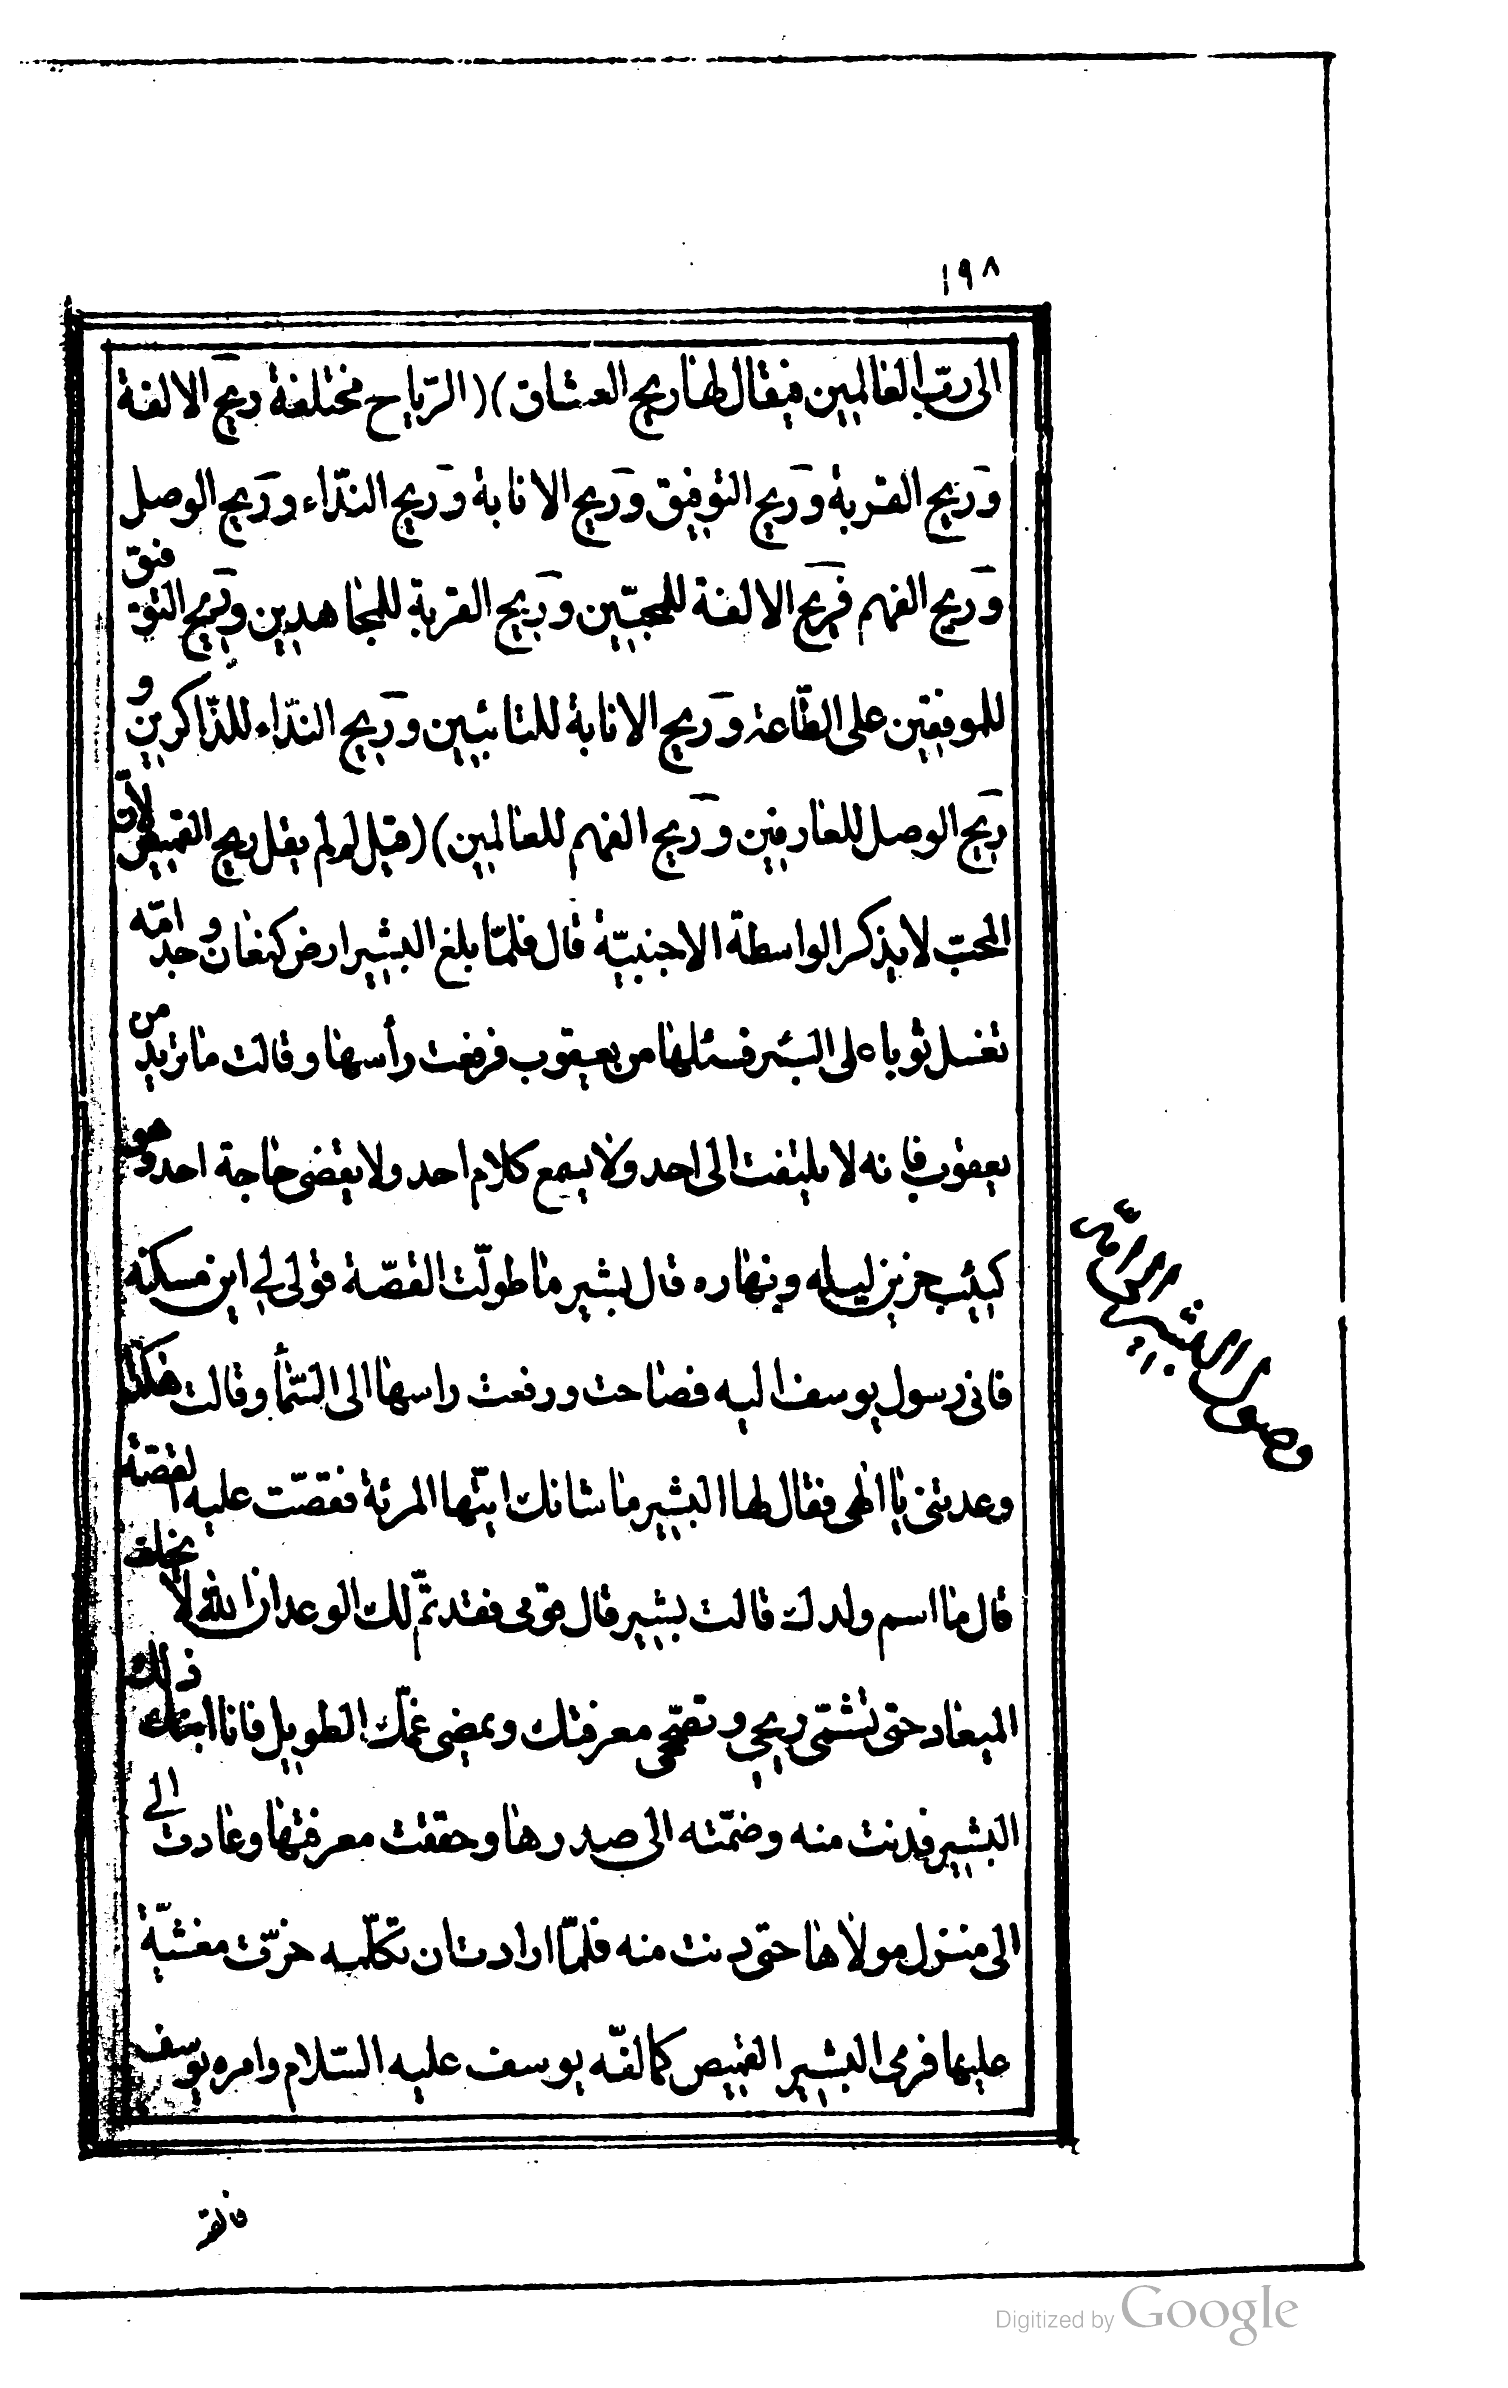 ١٩٨
الى ربّ العالمين فيقال لها ريح العشاق )( الرّياح مختلفة ريح الالفة
وريح القربة وريح التوفيق وريح الانابة وريح النّداء وريح الوصل
وريح الفهم فريح الالفة للمحبّين وريح القربة للمجاهدين وريح التوفيق
للموفقين على الطّاعة وريح الانابة للتائبين وريح النّداء للذّاكرين و
ريح الوصل للعارفين وريح الفهم للعالمين )( قيل لم لم يقل ريح القميص لانّ
المحبّ لا يذكر الواسطة الاجنبيّة قال فلمّا بلغ البشير ارض كنعان وجد امّه
تغسل ثوبا على البئر فسئلها من يعقوب فرفعت رأسها وقالت ما تريد من
يعقوب فانه لا يلتفت الى احد ولا يسمع كلام احد ولا يقضى حاجة احد وهو
كئيب حزين ليله ونهاره قال بشير ما طولّت القصّة قولى لى اين مسكنه
فانى رسول يوسف اليه فصاحت ورفعت راسها الى السّمأ وقالت هكذا
وعدتنى يا الهى فقال لها البشير ما شانك ايّتها المرئة فقصّت عليه القصّة
قال ما اسم ولدك قالت بشير قال قومى فقد تمّ لك الوعد ان الله لا يخلف
الميعاد حتى تشمّى ريحى وتصحّى معرفتك ويمضى غمّك الطويل فانا ابنك ذلك
البشير فدنت منه وضمّته الى صدرها وحققت معرفتها وعادت الى
الى منزل مولاها حتى دنت منه فلمّا ارادت ان تكلّمه خرّت مغشيّة
عليها فرمى البشير القميص كما لفّه يوسف عليه السّلام وامره يوسف
وصول البشير الى امّه
Digitized by Google